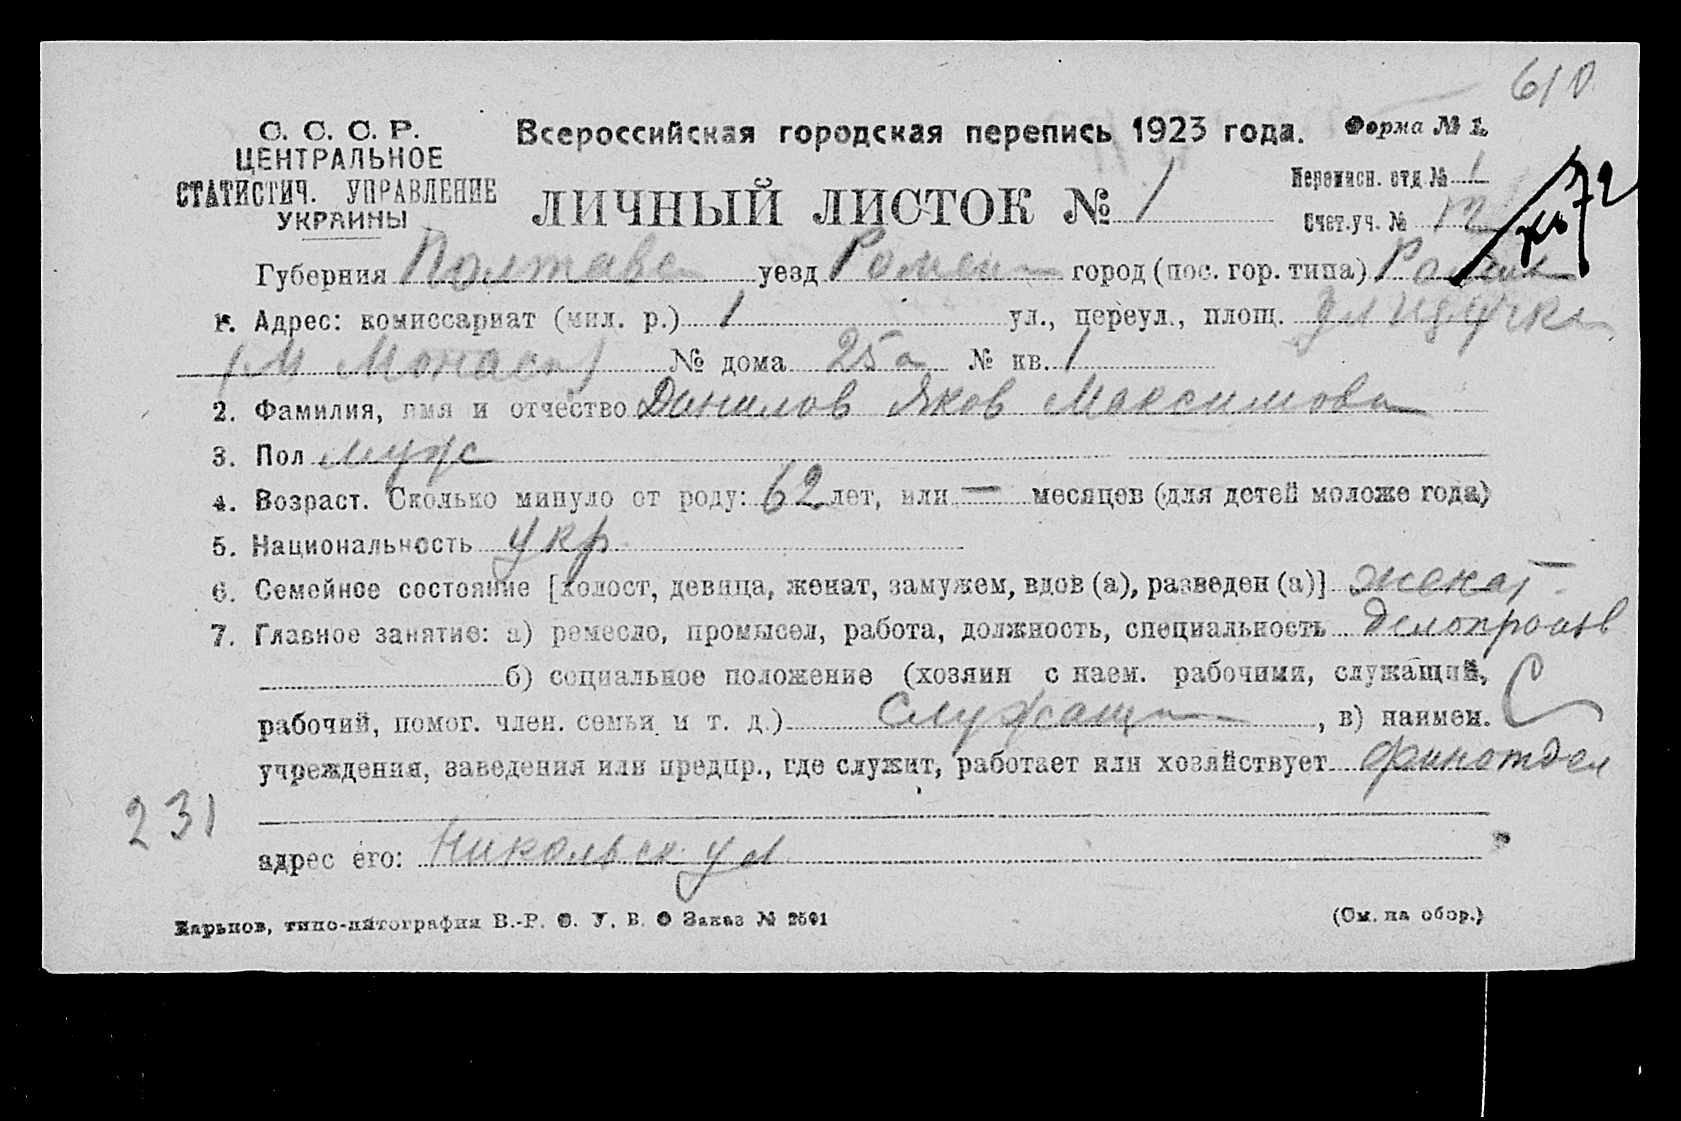 610
С. С. С. Р.
ЦЕНТРАЛЬНОЕ
СТАТИСТИЧ. УПРАВЛЕНИЕ
УКРАИНЫ
Всероссийская городская перепись 1923 года.
Форма № 1.
ЛИЧНЫЙ ЛИСТОК № 1
Переписн. отд. № 1
Счет. уч. № 12
72
Губерния Полтавс уезд Ромен город (пос. гор. типа) Ромен
1. Адрес: комиссариат (мил. р.) 1 ул., переул., площ.
(М Монаст) № дома 25а № кв. 1
2. Фамилия, имя и отчество Данилов Яков Максимов
3. Пол муж
4. Возраст. Сколько минуло от роду: 62 лет, или — месяцев (для детей моложе года)
5. Национальность укр
6. Семейное состояние [холост, девица, женат, замужем, вдов (а), разведен (а)] женат
7. Главное занятие: а) ремесло, промысел, работа, должность, специальность делопроизв
б) социальное положение (хозяин с наем. рабочими, служащий,
рабочий, помог. член. семьи и т. д.) Служащ , в) наимен. С
учреждения, заведения или предпр., где служит, работает или хозяйствует финотдел
231
адрес его: Никольск ул
Харьков, типо-литография В.-Р. О. У. В. О Заказ № 2591
(См. на обор.)